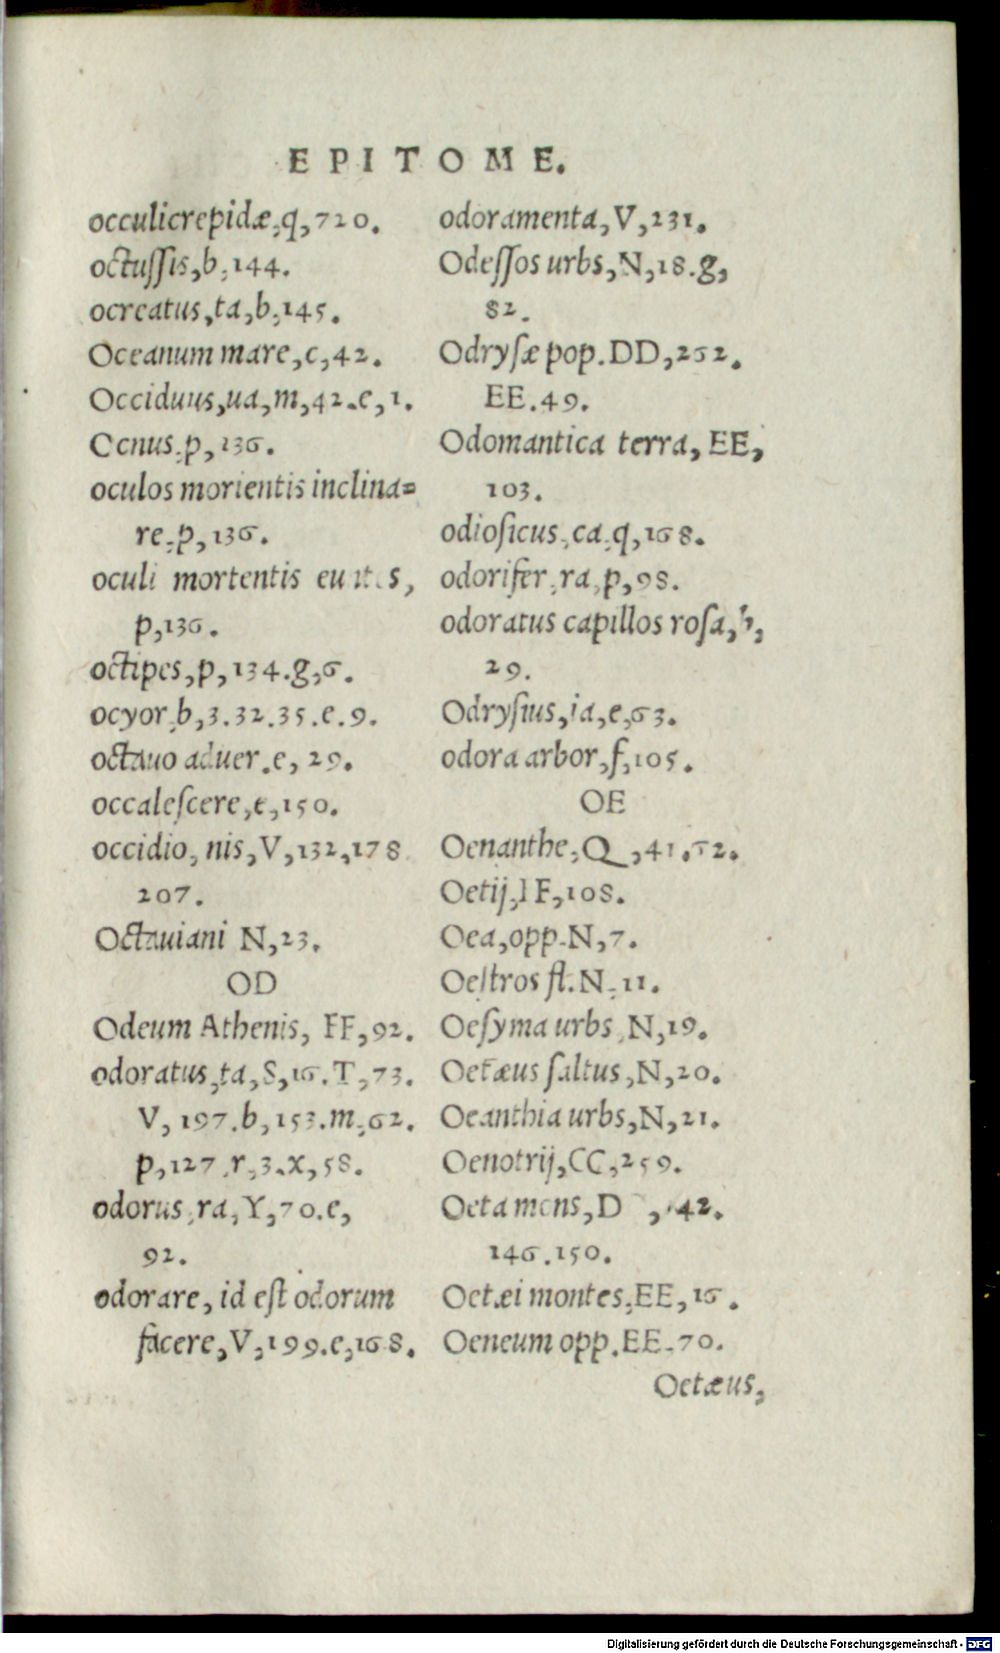 EPITOME.
occulicrepidæ, q, 720.
octussis, b, 144.
ocreatus, ta, b, 145.
Oceanum mare, c, 42.
Occiduus, ua, m, 42. e, 1.
Ocnus, p, 136.
oculos morientis inclina=
re, p, 136.
oculi mortentis
p, 136.
octipes, p, 134. g, 6.
ocyor, b, 3. 32. 35. e. 9.
octauo aduer. e, 29.
occalescere, e, 150.
occidio, nis, V, 132, 178
207.
Octauiani N, 23.
OD
Odeum Athenis, FF, 92.
odoratus, ta, S, 16. T, 73.
V, 197. b, 153. m, 62.
p, 127. r, 3. x, 58.
odorus, ra, Y, 70. e,
92.
odorare, id est odorum
facere, V, 199. e, 168.
odoramenta, V, 231.
Odessos urbs, N, 18. g,
82.
Odrysæ pop. DD, 252.
EE. 49.
Odomantica terra, EE,
103.
odiosicus, ca, q, 168.
odorifer, ra, p, 98.
odoratus capillos rosa,
29.
Odrysius, ia, e, 63.
odora arbor, f, 105.
OE
Oenanthe, Q, 41. 52.
Oetij, IF, 108.
Oea, opp. N, 7.
Oestros fl. N, 11.
Oesyma urbs, N, 19.
Oetæus saltus, N, 20.
Oeanthia urbs, N, 21.
Oenotrij, CC, 259.
Oeta mons, D 42.
146. 150.
Oetæi montes, EE, 16.
Oeneum opp. EE. 70.
Oetæus,
Digitalisierung gefördert durch die Deutsche Forschungsgemeinschaft - DFG